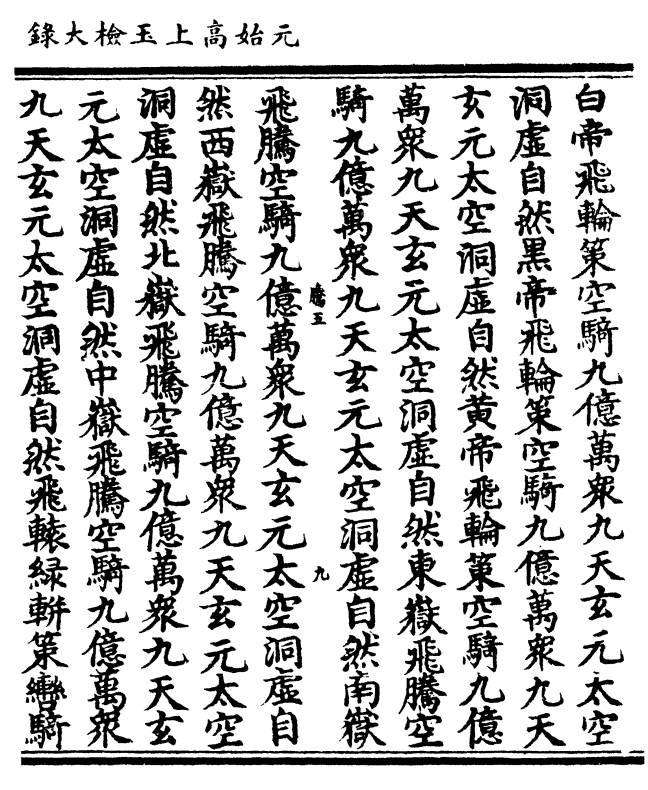 元始高上玉檢大錄
白帝飛輪策空騎九億萬衆九天玄元太空
洞虛自然黑帝飛輪策空騎九億萬衆九天
玄元太空洞虛自然黃帝飛輪策空騎九億
萬衆九天玄元太空洞虛自然東嶽飛騰空
騎九億萬衆九天玄元太空洞虛自然南嶽
騰五
九
飛騰空騎九億萬衆九天玄元太空洞虛自
然西嶽飛騰空騎九億萬衆九天玄元太空
洞虛自然北嶽飛騰空騎九億萬衆九天玄
元太空洞虛自然中嶽飛騰空騎九億萬衆
九天玄元太空洞虛自然飛轅緑軿策轡騎